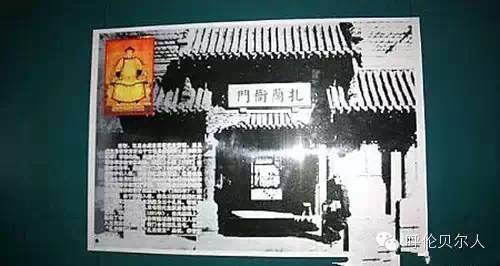 扎蘭衙門
呼伦贝尔人